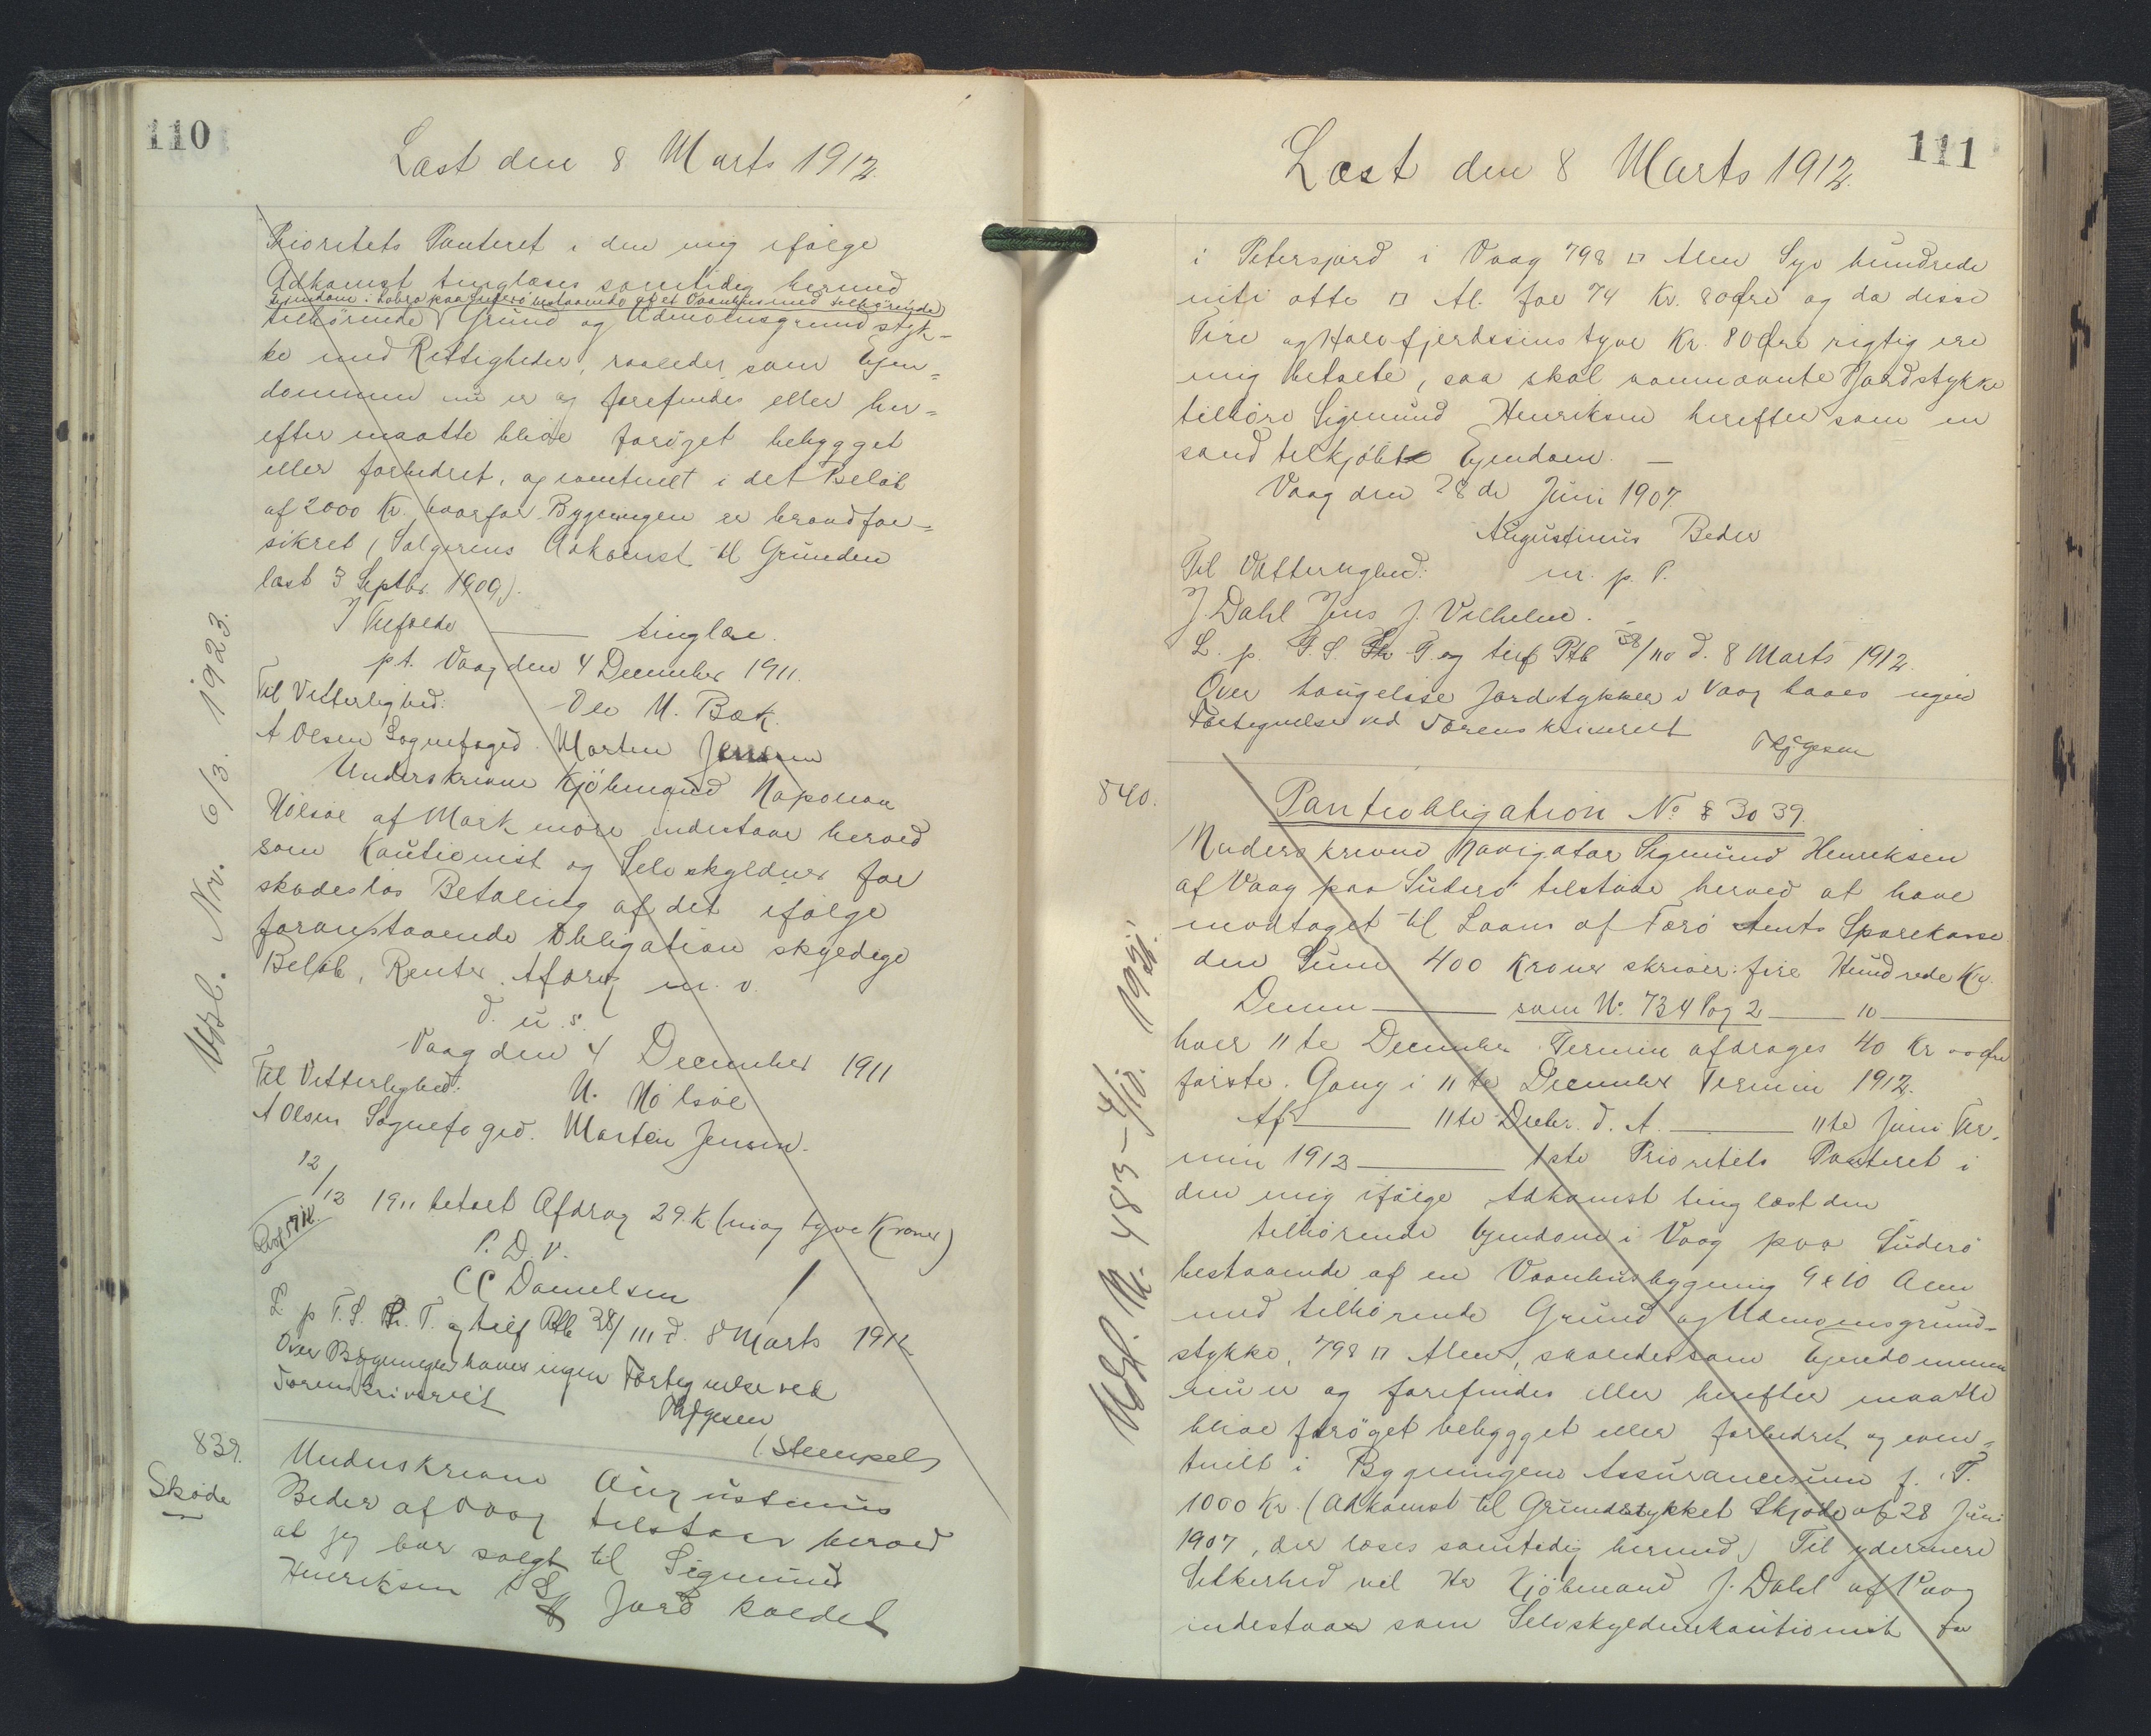 110
Læst den 8 Marts 1912.
Prioritets Panteret i den mig ifölge
Adkomst tinglæses samtidig hermed
Ejendom i paa Suderö bestaaende af et Vaanhus med tilhörende
tilhörende Grund og Udmonsgrundstyk-
ke med Rettigheder, saaledes som Ejen-
dommen nu er og forefindes eller her-
efter maatte blive foröget bebygget
eller forbedret, og eventuelt i det Belöb
af 2000 Kr. hvorfor Bygningen er brandfor-
sikret (Sælgerens Adkomst til Grunden
læst 3 Septbr. 1909).
I Tilfælde ——— tinglæse.
pt. Vaag den 4 December 1911.
Til Vitterlighed: Ole M. Bæk.
A Olsen Sognefoged. Morten Jensen
Underskrevne Kjöbmand Napoleon
Nolsöe af Mark more indestaar herved
som Kautionist og Selvskyldner for
skadeslös Betaling af det ifölge
foranstaaende Obligation skyldige
Belöb, Renter Afdrag m. v.
d. u. s.
Vaag den 4 December 1911
Til Vitterlighed: N. Nolsöe
A Olsen Sognefoged. Morten Jensen.
12/12 1911 betalt Afdrag 29 K (niog tyve Kroner)
P. D. V.
CC Danielsen
L. p T. S. Pr. T. og tilf Ptb 38/111 d. 8 Marts 1912
Over Bygninger haves ingen Fortegnelse ved
Sorenskriveriet
(Stempel)
Udsl. Nr. 6/3. 1923.
839.
Sköde
Underskrevne Augustinus
Beder af Vaag tilstaar herved
at jeg har solgt til Sigmund
Henriksen Jord kaldet
111
Læst den 8 Marts 1912.
i Petersjord i Vaag 798 □ Alen Syv hundrede
niti otte □ Al. for 74 Kr. 80 Øre og da disse
Fire og Halvfjerdesinstyve Kr. 80 Øre rigtig ere
mig betalte, saa skal ommævnte Jordstykke
tilhöre Sigmund Henriksen herefter som en
sand tilkjöbt Ejendom. —
Vaag den 28 de Juni 1907.
Augustinus Beder
Til Vitterlighed: m. p. P.
J. Dahl Jens J. Vilhelm.
L. p. T. S. Pr T. og tilf Ptb 38/110 d. 8 Marts 1912.
Over saugelsse Jordstykker i Vaag haves ingen
Fortegnelse ved Sorenskriveriet
840.
Panteobligation No 83039.
Underskrevne Navigatør Sigmund Henriksen
af Vaag paa Suderö tilstaar herved at have
modtaget til Laans af Færö Amts Sparekasse
den Sum 400 Kroner skriver: fire Hundrede Kr.
Denne ——— som No. 734 Pag 2 ——— 10 ———
hver 11te December Termin afdrages 40 Kr 00 Øre
förste Gang i 11te December Termin 1912.
Af ——— 11te Decbr. d. A. ——— 11te Juni Ter-
min 1912 ——— 1ste Prioritets Panteret i
den mig ifölge Adkomst tinglæst den
tilhörende Ejendom i Vaag paa Suderö
bestaaende af en Vaanhusbygning 9 x 10 Alen
med tilhörende Grund og Udmonsgrund-
stykke, 798 □ Alen, saaledes som Ejendommen
nu er og forefindes eller herefter maatte
blive foröget bebygget eller forbedret, og even-
tuelt i Bygningens Assurancesum f. T.
1000 Kr. (Adkomst til Grundstykket Skjöde af 28 Juni
1907, der læses samtidig hermed) Til ydermere
Sikkerhed vil Hr Kjöbmand J. Dahl af Vaag
indestaar som Selvskyldnerkautionist for
Udsl. Nr. 483 - 4/10. 1921.